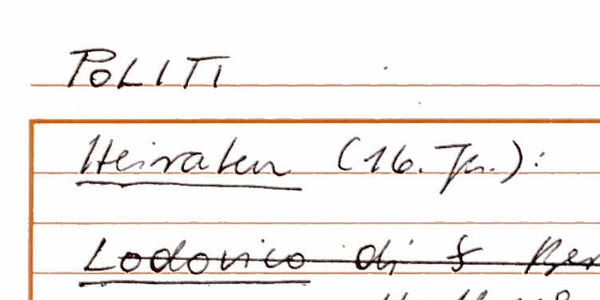 POLITI
Heiraten (16. Jh.):
Lodovico di f Ber